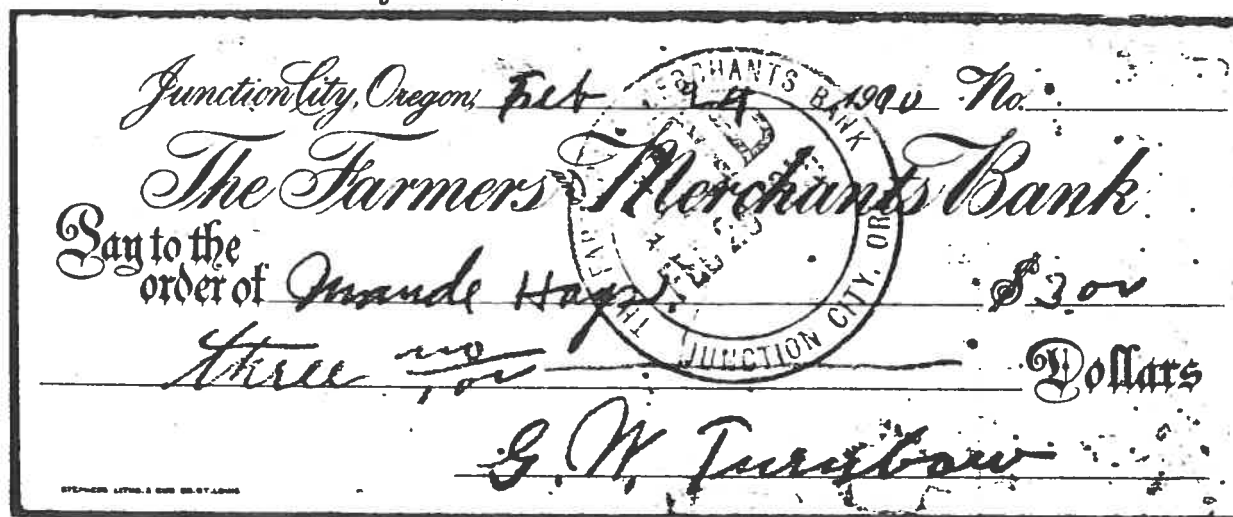 Junction City, Oregon, Feb 24 1920 No.
The Farmers & Merchants Bank
Pay to the
order of Maude Hays $3.00
three no/100 Dollars
G. W. Turnbow
MERCHANTS BANK
JUNCTION CITY, OR